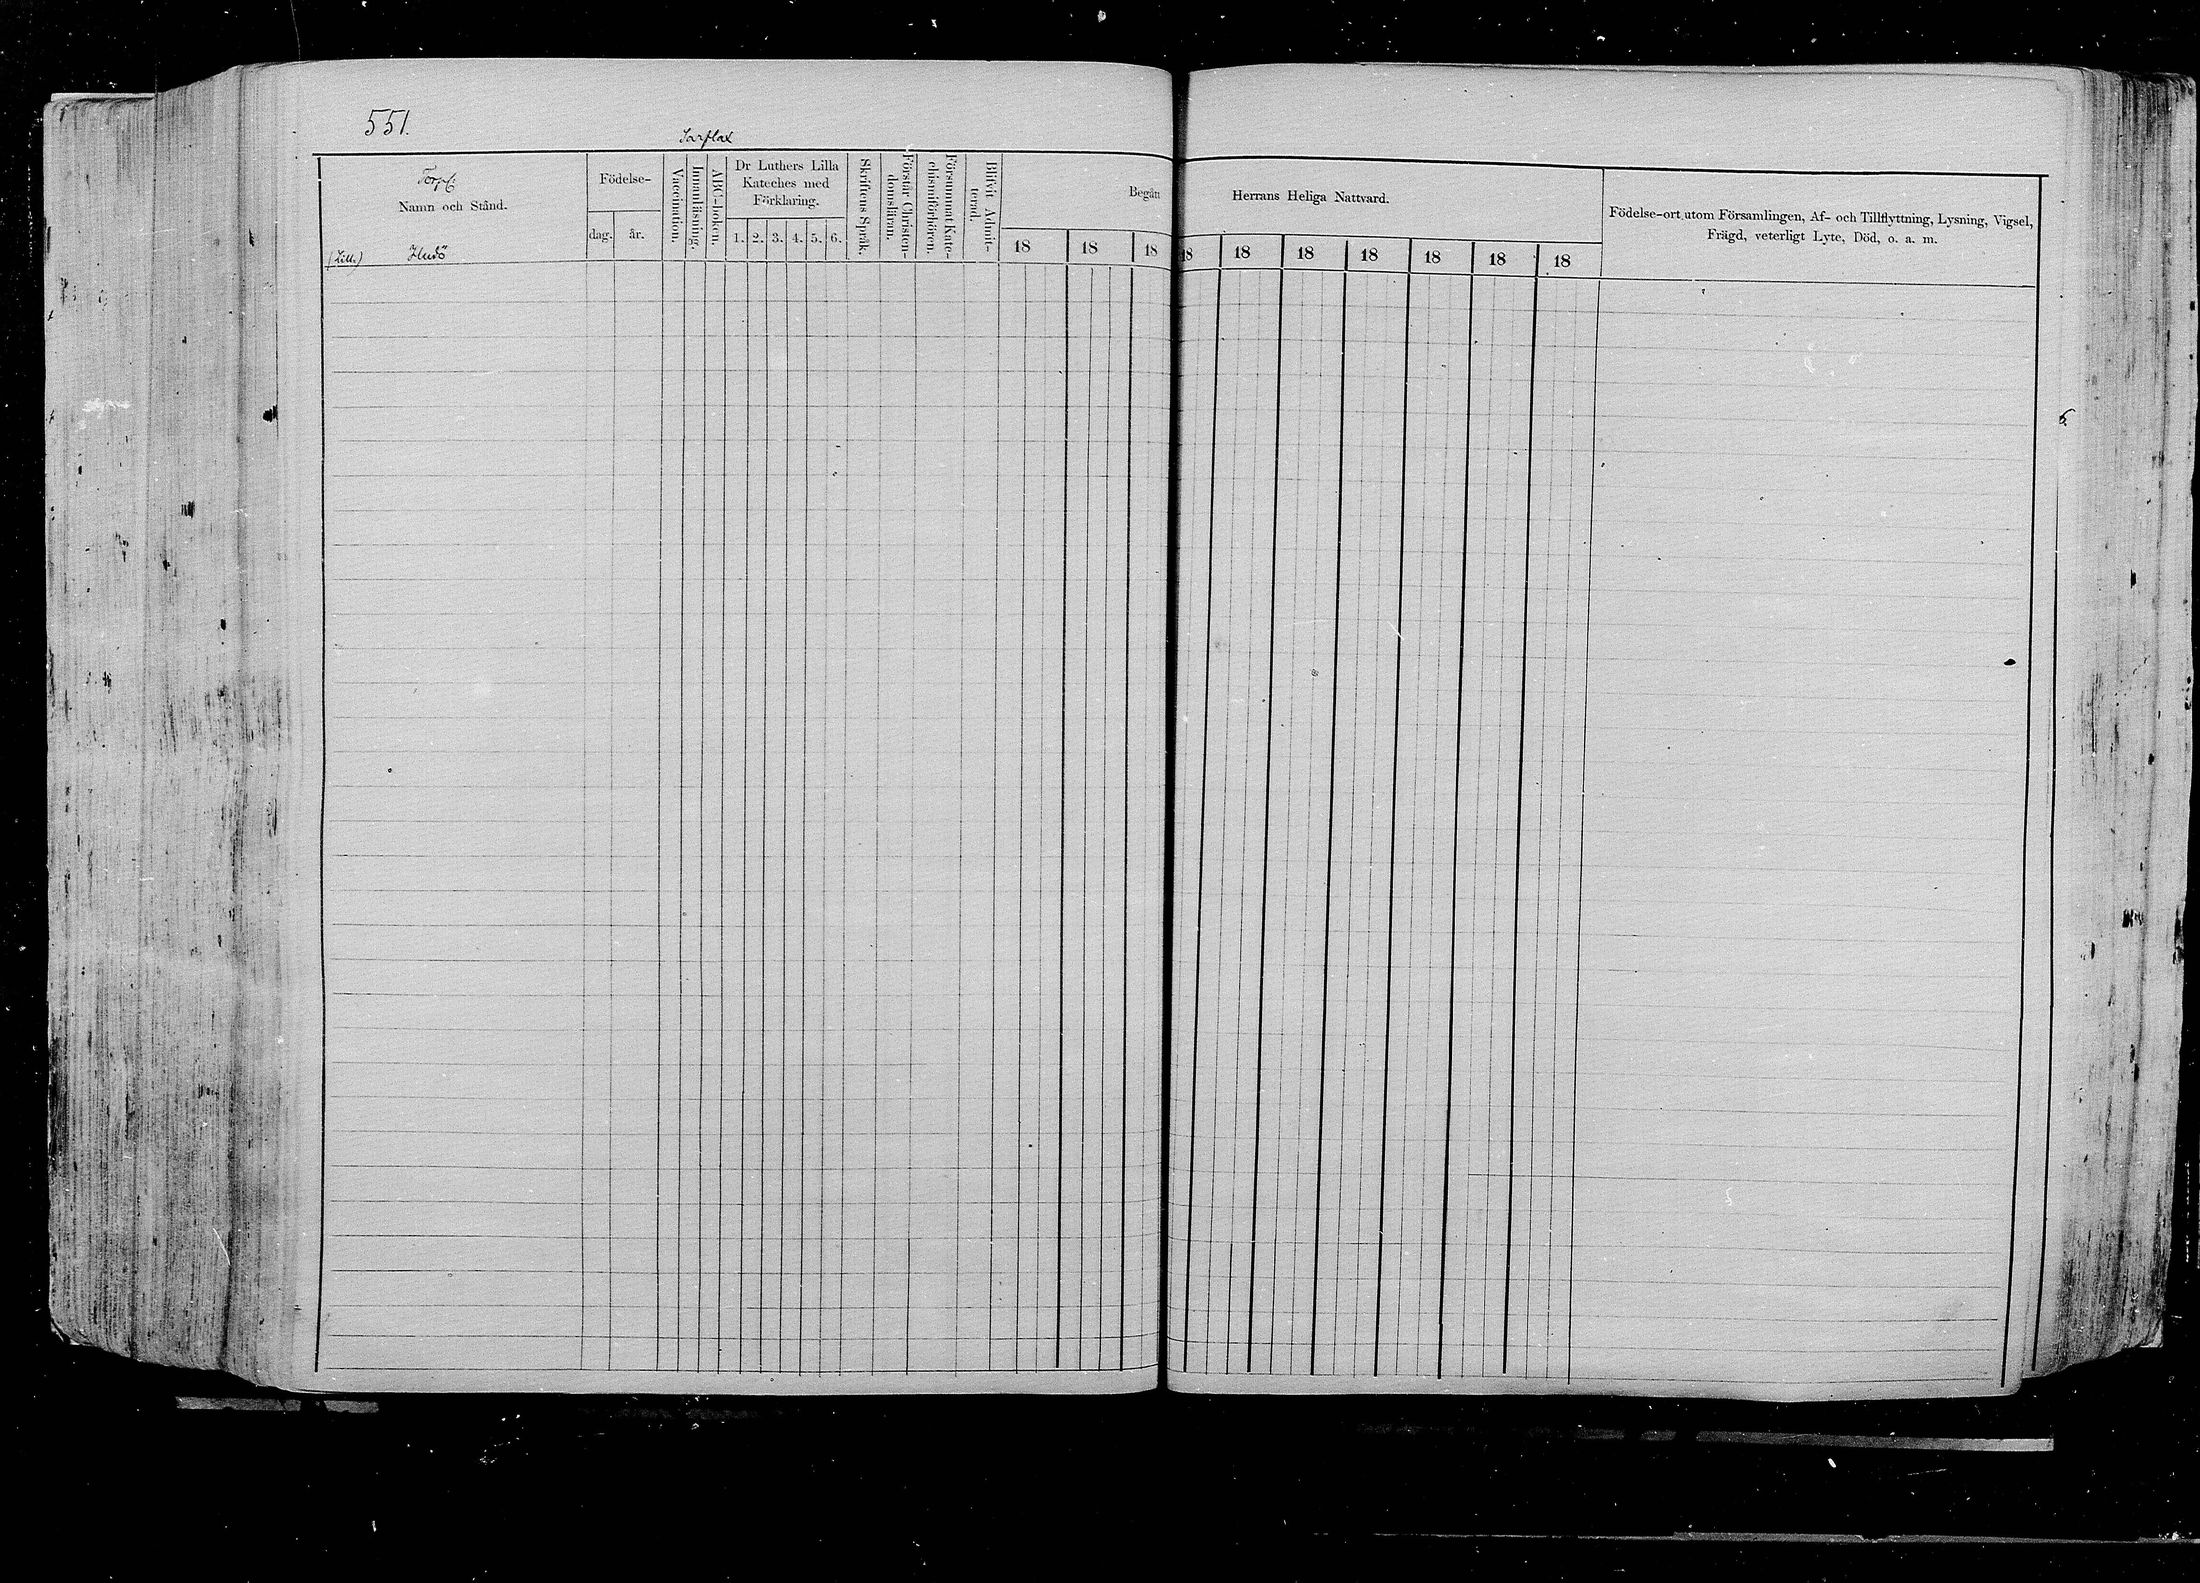 551.
Sarflax
Torp:
Namn och Stånd.
(Lill.) Hudö
Födelse-
dag. år.
Vaccination.
Innanläsning.
ABC-boken.
Dr Luthers Lilla
Kateches med
Förklaring.
1. 2. 3. 4. 5. 6.
Skriftens Språk.
Förstår Christen-
domsläran.
Försummat Kate-
chismiförhören.
Blifvit Admit-
terad.
Begått Herrans Heliga Nattvard.
18 18 18 18 18 18 18 18 18 18
Födelse-ort utom Församlingen, Af- och Tillflyttning, Lysning, Vigsel,
Frägd, veterligt Lyte, Död, o. a. m.